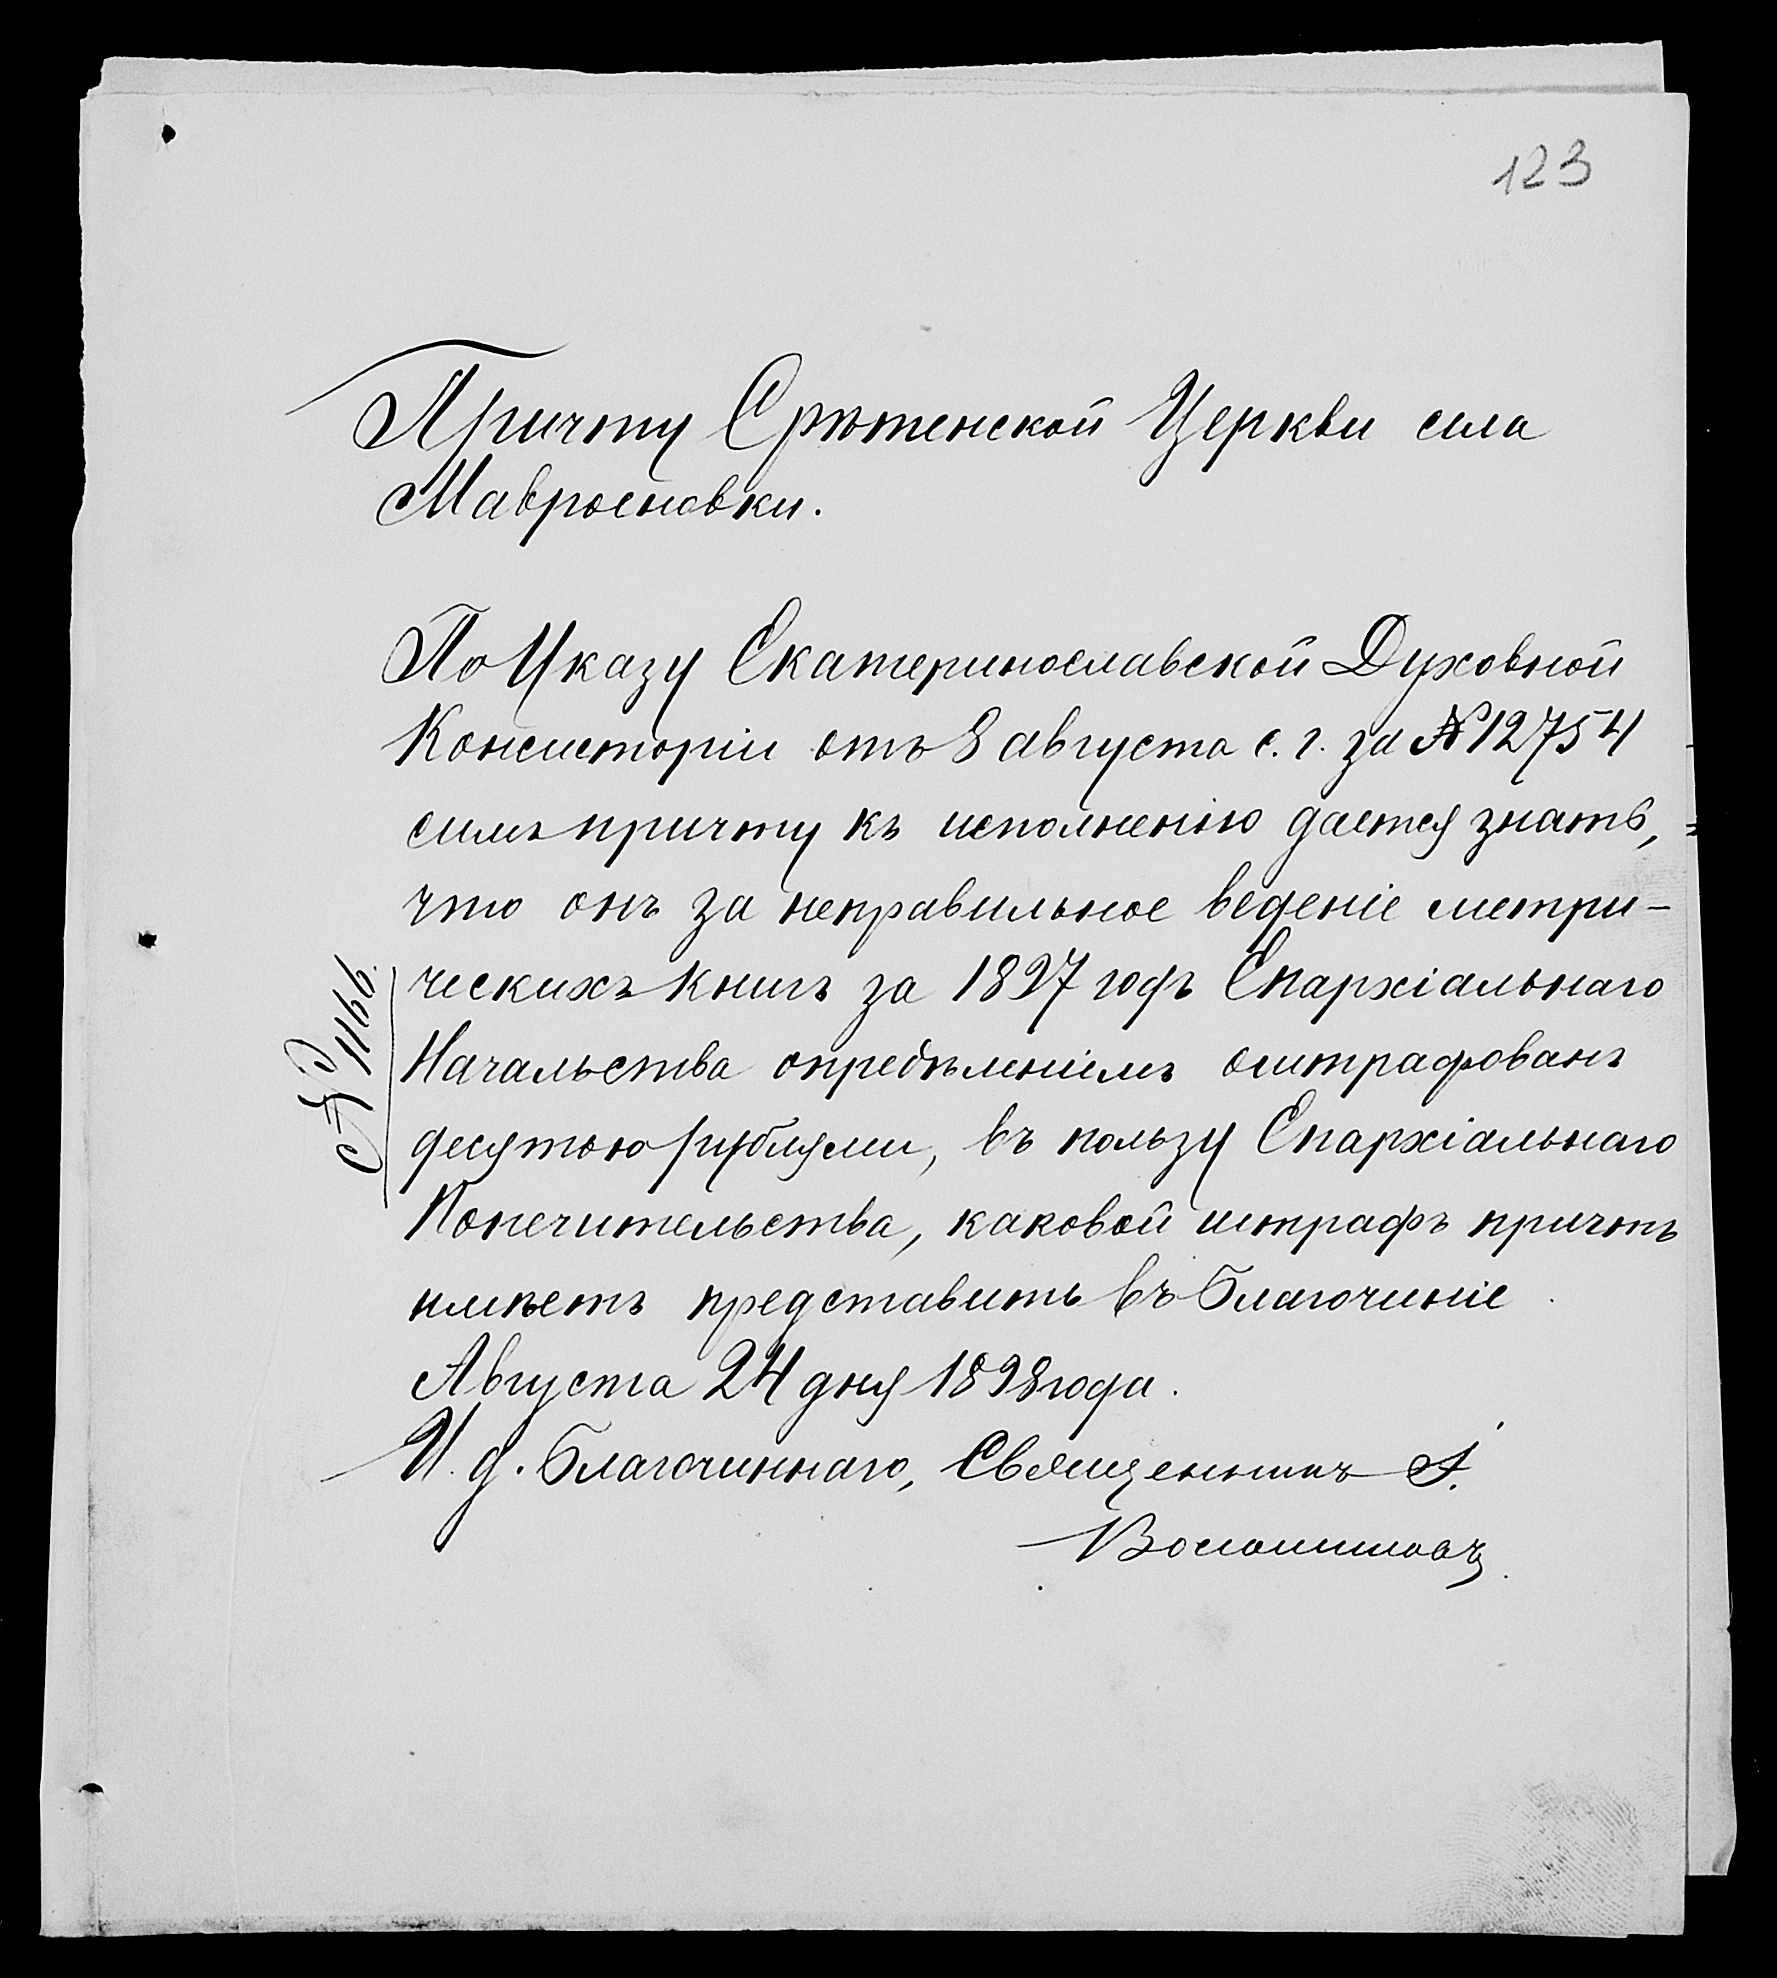 123
Причту Срѣтенской Церкви села
Мавроеновки.
По Указу Екатеринославской Духовной
Консисторіи отъ 8 августа с. г. за № 12754
симъ причту къ исполненію дается знать,
что онъ за неправильное веденіе метри-
ческихъ книгъ за 1897 годъ Епархіальнаго
Начальства опредѣленіемъ оштрафованъ
десятью рублями, въ пользу Епархіальнаго
Попечительства, каковой штрафъ причтъ
имѣетъ представить въ Благочиніе
Августа 24 дня 1898 года.
И. д. Благочиннаго, Священникъ І.
№ 1166.